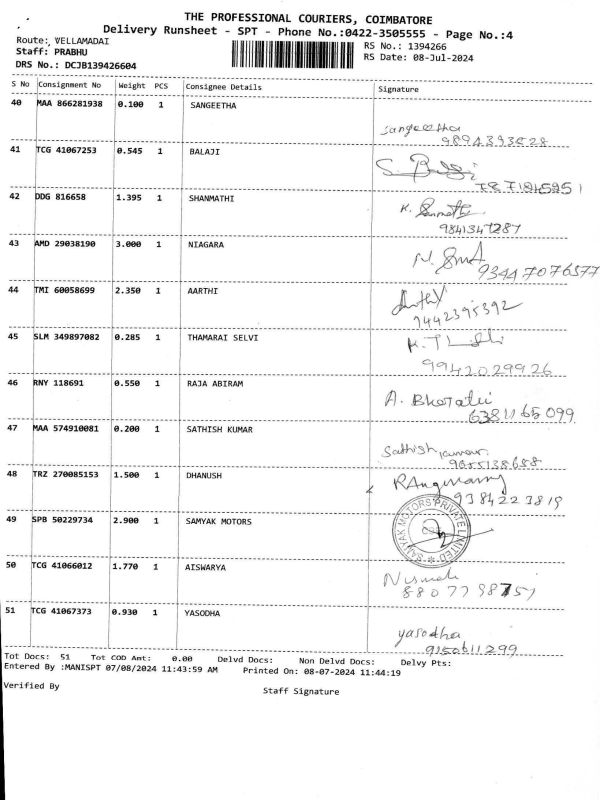 THE PROFESSIONAL COURIERS, COIMBATORE
Delivery Runsheet - SPT - Phone No.:0422-3505555 - Page No.:4
Route: VELLAMADAI
RS No.: 1394266
Staff: PRABHU
RS Date: 08-Jul-2024
DRS No.: DCJB139426604
S No Consignment No Weight PCS Consignee Details Signature
40 MAA 866281938 0.100 1 SANGEETHA
sangeetha
41 TCG 41067253 0.545 1 BALAJI
42 DDG 816658 1.395 1 SHANMATHI
K.
9841347287
43 AMD 29038190 3.000 1 NIAGARA
N.
93447076577
44 TMI 60058699 2.350 1 AARTHI
9442395392
45 SLM 349897082 0.285 1 THAMARAI SELVI
9942029926
46 RNY 118691 0.550 1 RAJA ABIRAM
A.
6381165099
47 MAA 574910081 0.200 1 SATHISH KUMAR
Sathish kumar
9655138658
48 TRZ 270085153 1.500 1 DHANUSH
9384223819
49 SPB 50229734 2.900 1 SAMYAK MOTORS
SAMYAK MOTORS PRIVATE LIMITED
50 TCG 41066012 1.770 1 AISWARYA
51 TCG 41067373 0.930 1 YASODHA
yasodha
9150611299
Tot Docs: 51 Tot COD Amt: 0.00 Delvd Docs: Non Delvd Docs: Delvy Pts:
Entered By :MANISPT 07/08/2024 11:43:59 AM Printed On: 08-07-2024 11:44:19
Verified By
Staff Signature